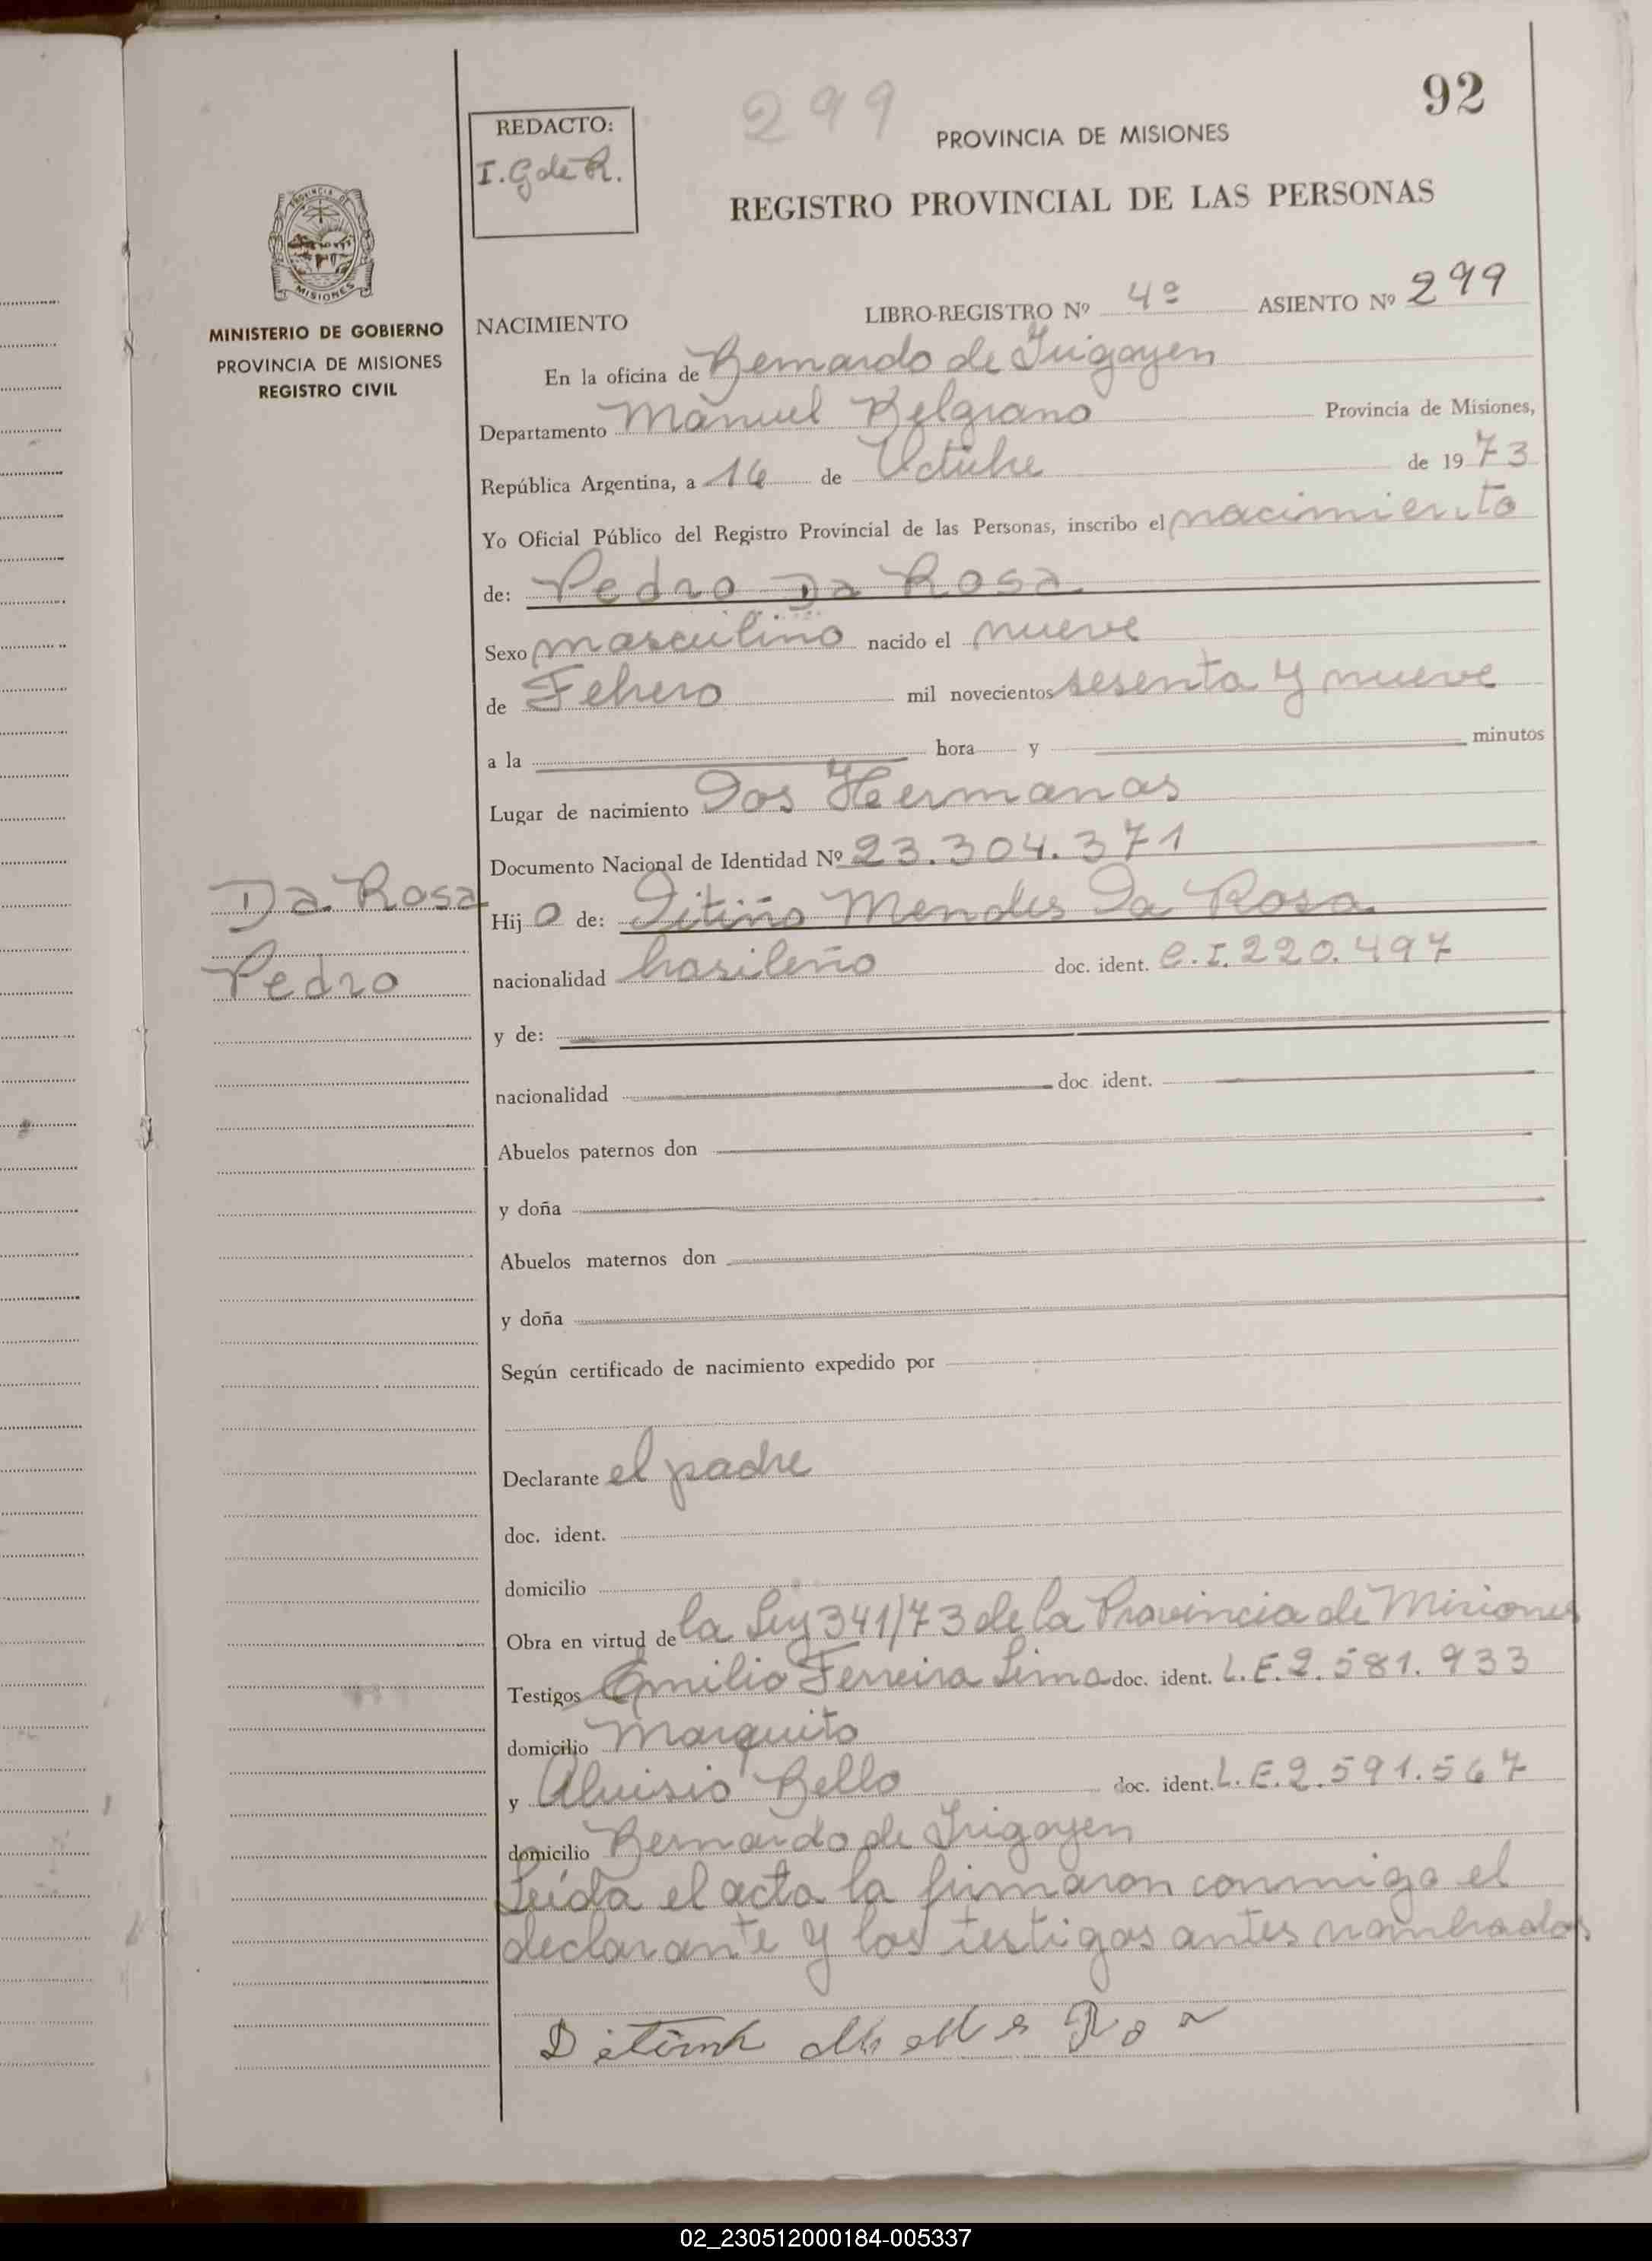 92
299
REDACTO:
I. G de R.
PROVINCIA DE MISIONES
REGISTRO PROVINCIAL DE LAS PERSONAS
PROVINCIA DE
MISIONES
MINISTERIO DE GOBIERNO
PROVINCIA DE MISIONES
REGISTRO CIVIL
LIBRO-REGISTRO Nº 4º ASIENTO Nº 299
NACIMIENTO
En la oficina de Bernardo de Irigoyen
Departamento Manuel Belgrano Provincia de Misiones,
República Argentina, a 16 de Octubre de 1973
Yo Oficial Público del Registro Provincial de las Personas, inscribo el nacimiento
de: Pedro Da Rosa
Sexo masculino nacido el nueve
de Febrero mil novecientos sesenta y nueve
a la hora y minutos
Lugar de nacimiento Dos Hermanas
Documento Nacional de Identidad Nº 23.304.371
Da Rosa
Pedro
Hijo de: Ditiño Mendes Da Rosa
nacionalidad brasileño doc. ident. C.I. 220.497
y de:
nacionalidad doc. ident.
Abuelos paternos don
y doña
Abuelos maternos don
y doña
Según certificado de nacimiento expedido por
Declarante el padre
doc. ident.
domicilio
Obra en virtud de la Ley 341/73 de la Provincia de Misiones
Testigos Emilio Ferreira Lima doc. ident. L.E. 2.581.933
domicilio Marquito
y Aluisio Bello doc. ident. L.E. 2.591.567
domicilio Bernardo de Irigoyen
Leída el acta la firmaron conmigo el
declarante y los testigos antes nombrados
02_230512000184-005337